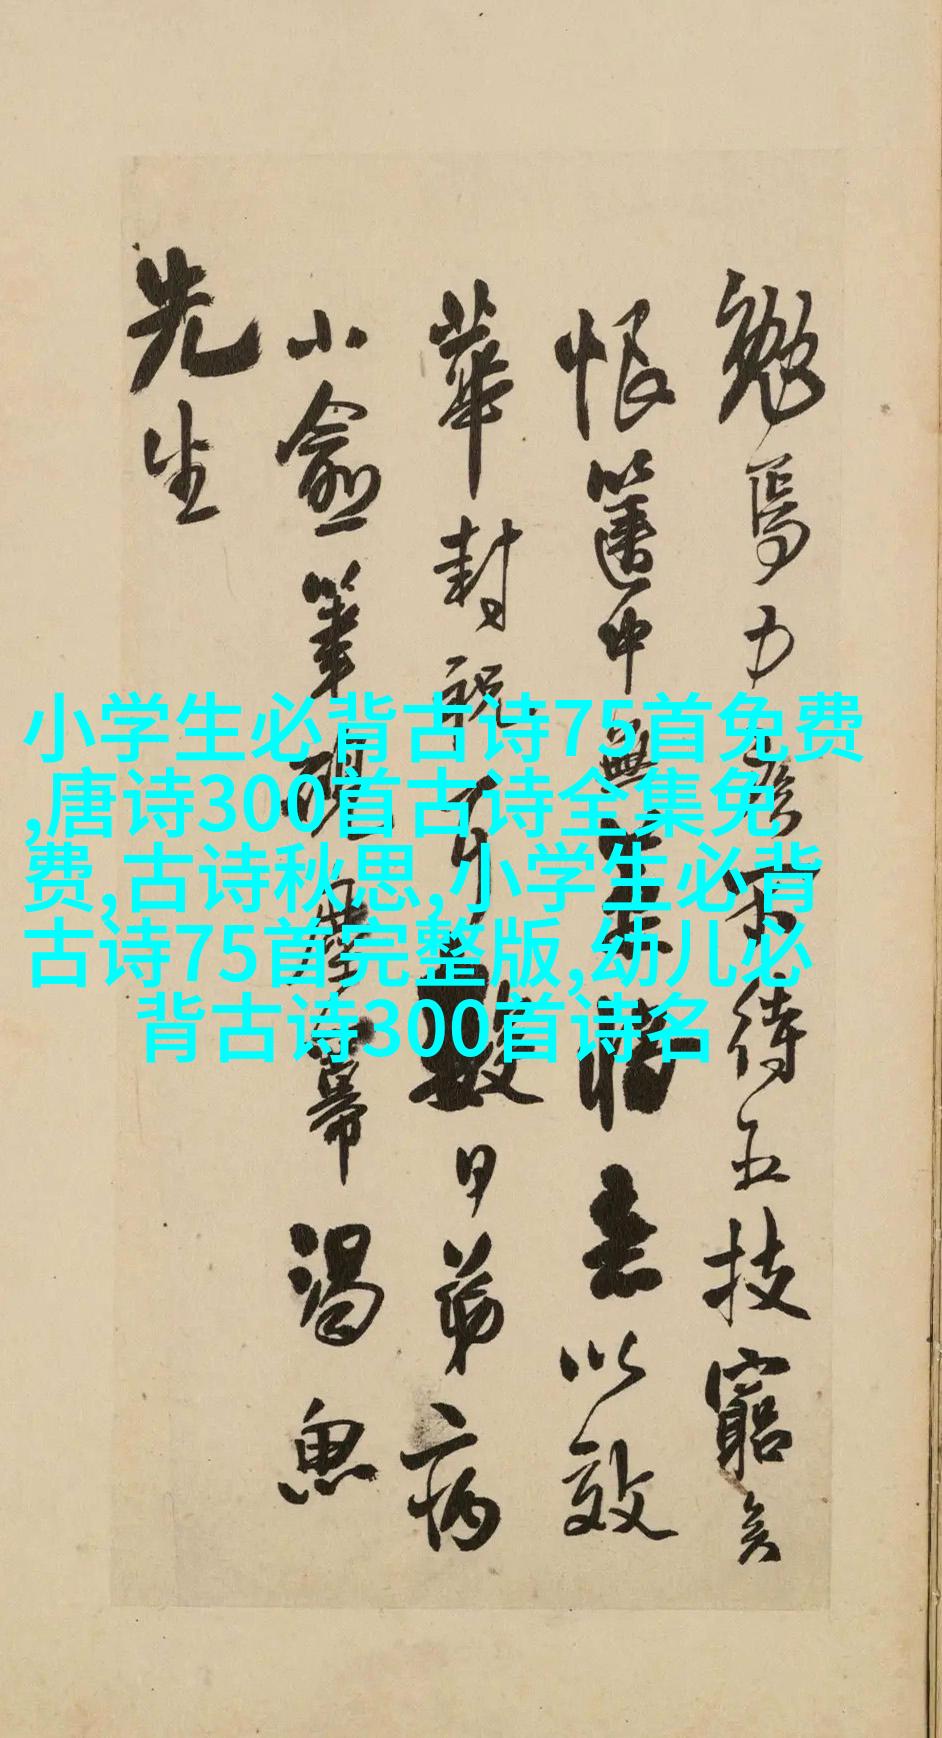 勉焉力疾不待五技窮矣
恨篋中無以效
華封祝耳數日弟病
小愈筆硯塵冪渴思
先生
小学生必背古诗75首免费
,唐诗300首古诗全集免
费,古诗秋思,小学生必背
古诗75首完整版,幼儿必
背古诗300首诗名